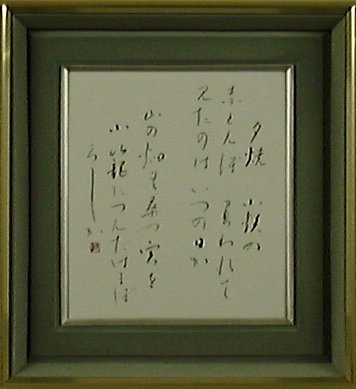 夕焼　小焼の
赤とんぼ　負われて
見たのは　いつの日か
山の畑の桑の実を
小籠につんだはまぼ
ろしか